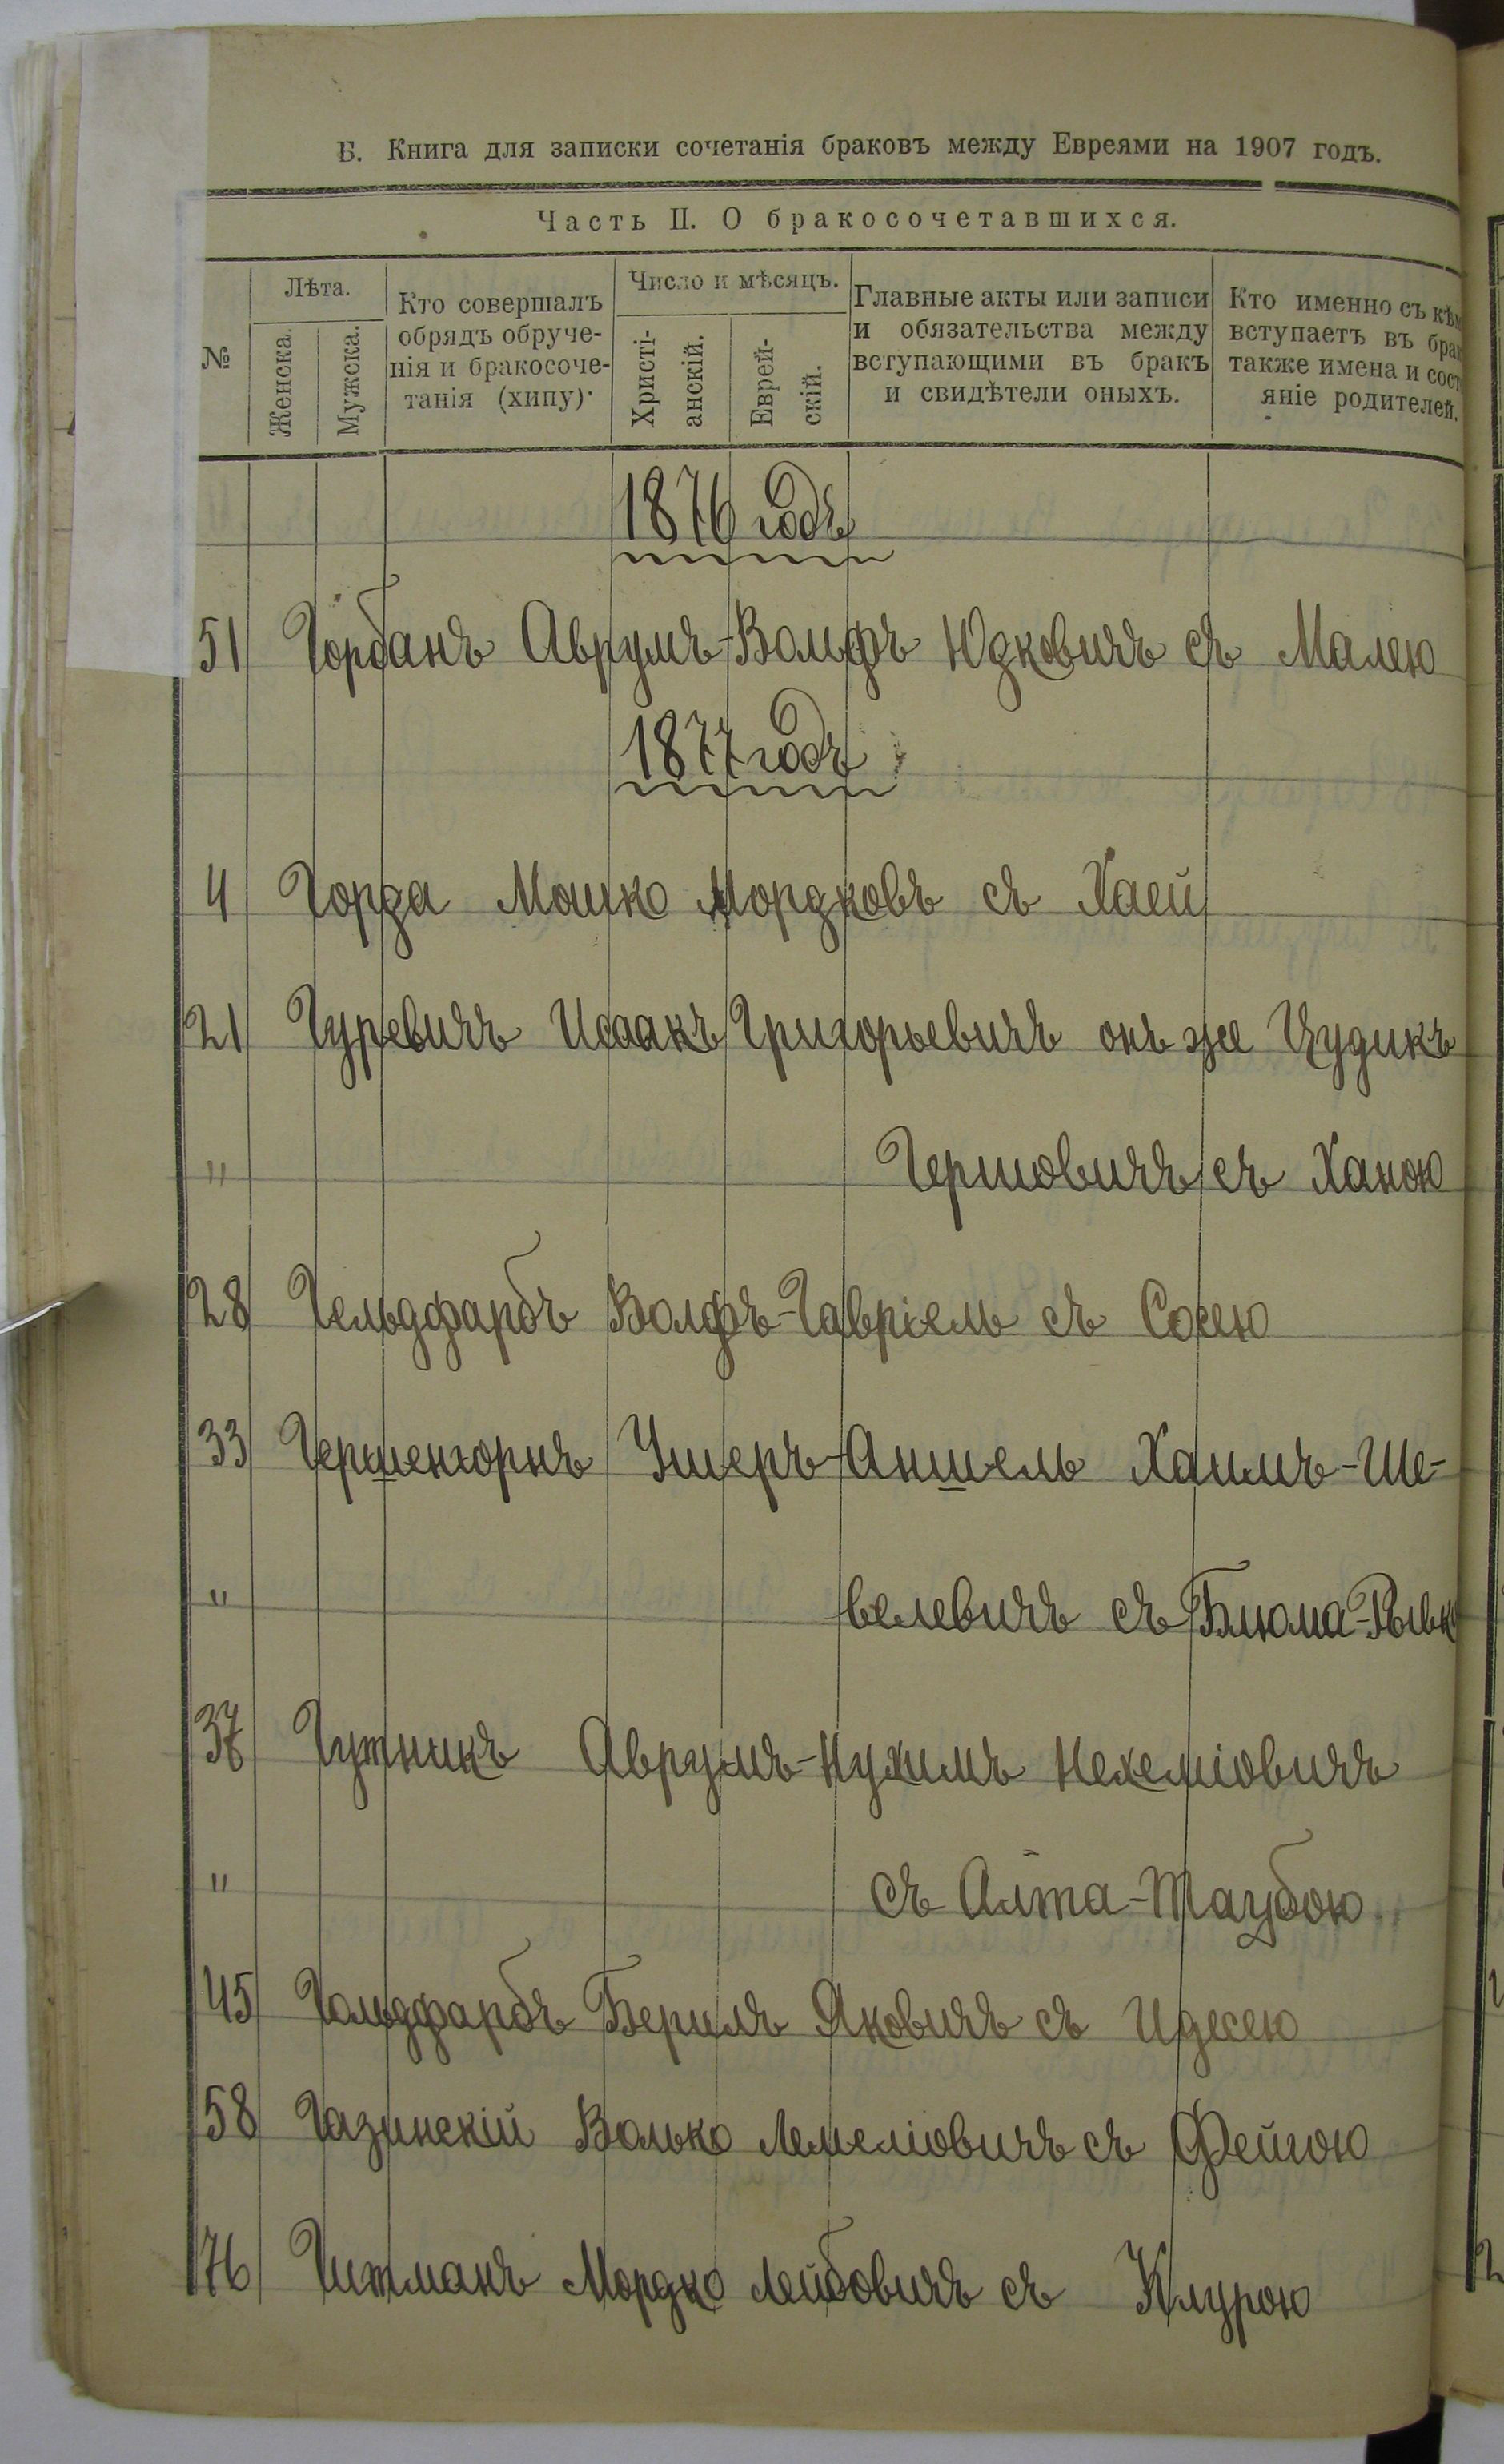 Б. Книга для записки сочетанія браковъ между Евреями на 1907 годъ.
Часть II. О бракосочетавшихся.
№
Лѣта.
Женска.
Мужска.
Кто совершалъ
обрядъ обруче-
нія и бракосоче-
танія (хипу)
Число и мѣсяцъ.
Христі-
анскій.
Еврей-
скій.
Главные акты или записи
и обязательства между
вступающими въ бракъ
и свидѣтели оныхъ.
Кто именно съ кѣм
вступаетъ въ брак
также имена и сост
яніе родителей.
1876 годъ
51 Горбанъ Аврумъ-Вольфъ Юдковичъ съ Малею
1877 годъ
4 Горда Мошко Мордковъ съ Хаей
21 Гуревичъ Исаакъ Григорьевичъ онъ же Цудикъ
" Гершовичъ съ Ханою
28 Гельдфарбъ Волфъ-Гавріель съ Сосею
33 Гершенгорнъ Ушеръ-Аншель Хаимъ-Ше-
" велевичъ съ Блюма-Рывк
37 Гутникъ Аврумъ-Нухимъ Нехеміовичъ
" съ Алта-Таубою
45 Гольдфарбъ Берилъ Яковичъ съ Идесею
58 Газинскій Волько Лемеліовичъ съ Фейгою
76 Гитманъ Мордко Лейбовичъ съ Клурою